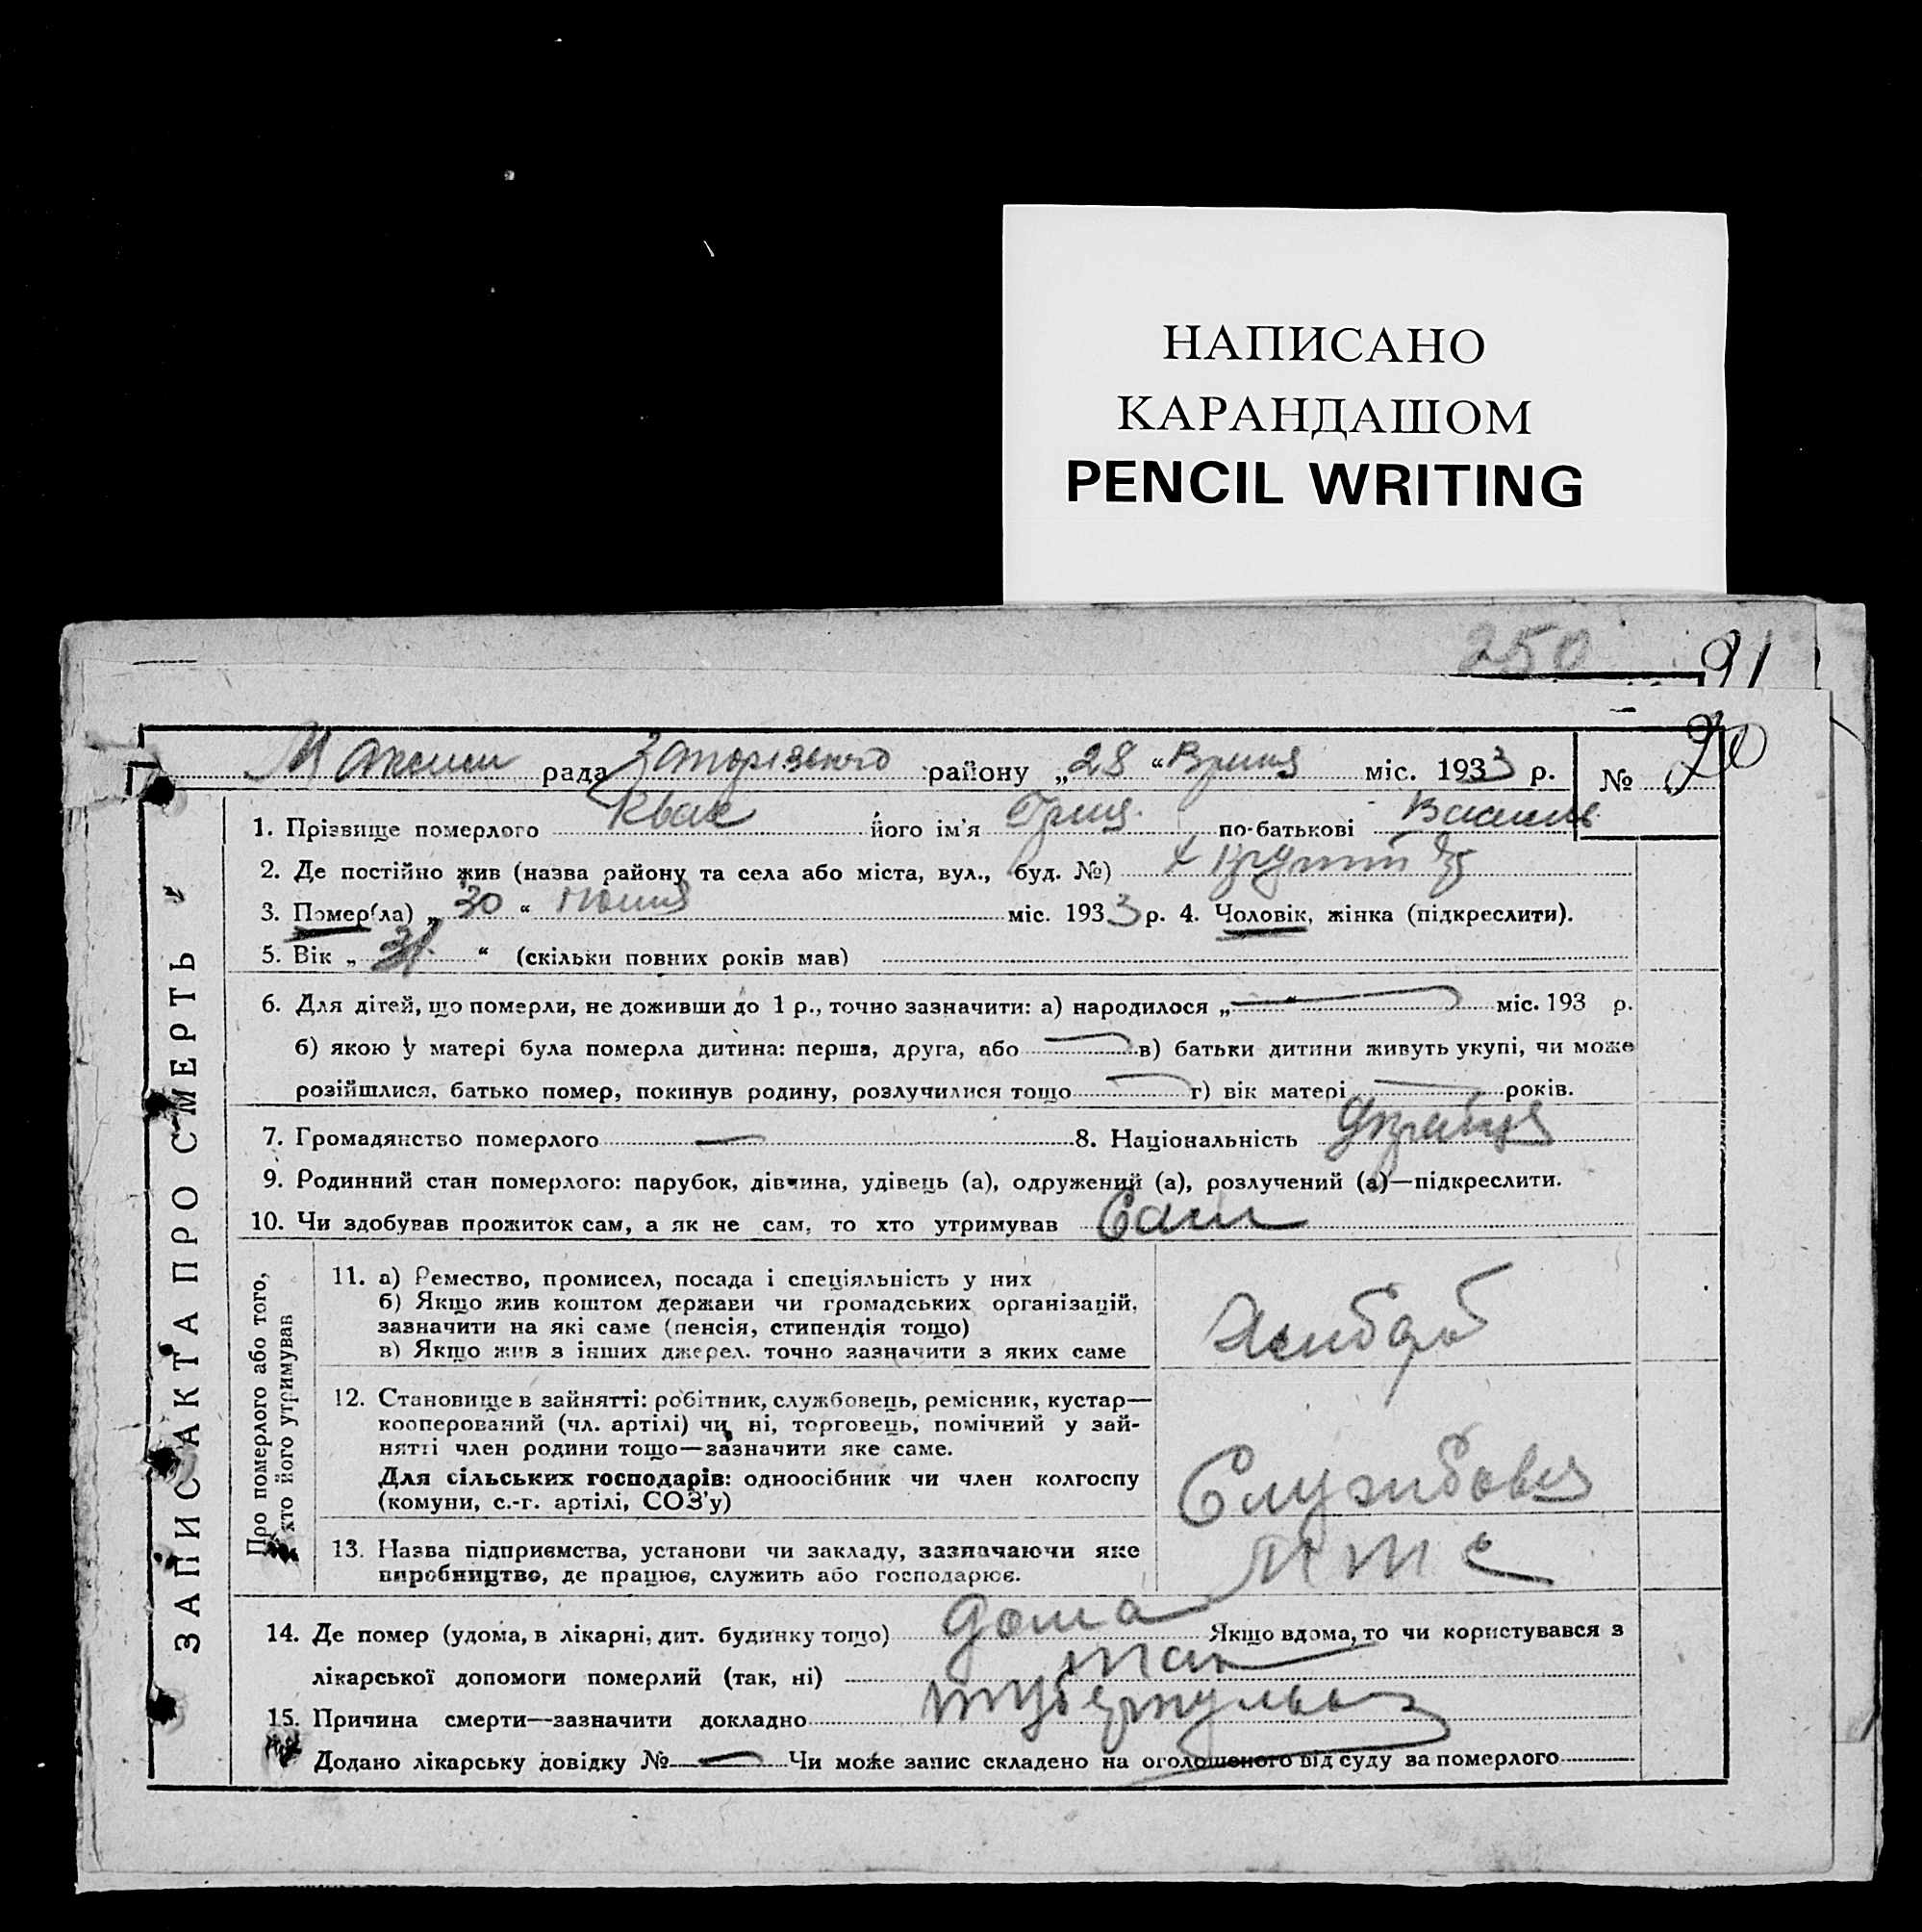 НАПИСАНО
КАРАНДАШОМ
PENCIL WRITING
250 91
рада Запорізького району „28“ міс. 1933 р. № 90
1. Прізвище померлого Квак його ім'я Гриц. по-батькові Василь
2. Де постійно жив (назва району та села або міста, вул., буд. №)
3. Помер(ла) „30“ міс. 1933 р. 4. Чоловік, жінка (підкреслити).
5. Вік „31“ (скільки повних років мав)
6. Для дітей, що померли, не доживши до 1 р., точно зазначити: а) народилося „ “ міс. 193 р.
б) якою у матері була померла дитина: перша, друга, або в) батьки дитини живуть укупі, чи може
розійшлися, батько помер, покинув родину, розлучилися тощо г) вік матері років.
7. Громадянство померлого — 8. Національність Українця
9. Родинний стан померлого: парубок, дівчина, удівець (а), одружений (а), розлучений (а)—підкреслити.
10. Чи здобував прожиток сам, а як не сам, то хто утримував Сам
Про померлого або того,
хто його утримував
11. а) Ремество, промисел, посада і спеціяльність у них
б) Якщо жив коштом держави чи громадських організацій,
зазначити на які саме (пенсія, стипендія тощо)
в) Якщо жив з інших джерел. точно зазначити з яких саме
12. Становище в зайнятті: робітник, службовець, ремісник, кустар—
кооперований (чл. артілі) чи ні, торговець, помічний у зай-
нятті член родини тощо—зазначити яке саме.
Для сільських господарів: одноосібник чи член колгоспу
(комуни, с.-г. артілі, СОЗ'у)
13. Назва підприємства, установи чи закладу, зазначаючи яке
виробництво, де працює, служить або господарює.
МТС
14. Де помер (удома, в лікарні, дит. будинку тощо) дома Якщо вдома, то чи користувався з
лікарської допомоги померлий (так, ні) так
15. Причина смерти—зазначити докладно туберкульоз
Додано лікарську довідку № — Чи може запис складено на оголошеного від суду за померлого
ЗАПИС АКТА ПРО СМЕРТЬ